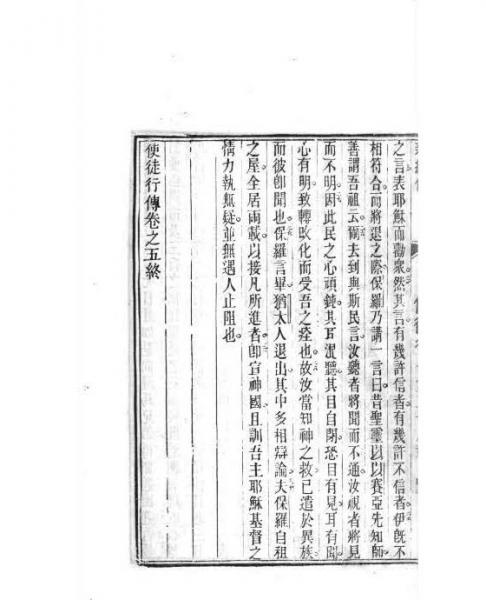 之言表耶穌而勸衆然其言有幾許信者有幾許不信者伊旣不
相符合而將退之際保羅乃講一言曰昔聖靈以以賽亞先知師
善謂吾祖云爾去到與斯民言汝聽者將聞而不通汝視者將見
而不明因此民之心頑鏈其耳混聽其目自閉恐目有見耳有聞
心有明致轉改化而受吾之痊也故汝當知神之救已遣於異族
而彼卽聞也保羅言畢猶太人退出其中多相辯論夫保羅自租
之屋全居兩載以接凡所進者卽宣神國且訓吾主耶穌基督之
情力執無疑並無遇人止阻也
使徒行傳卷之五終